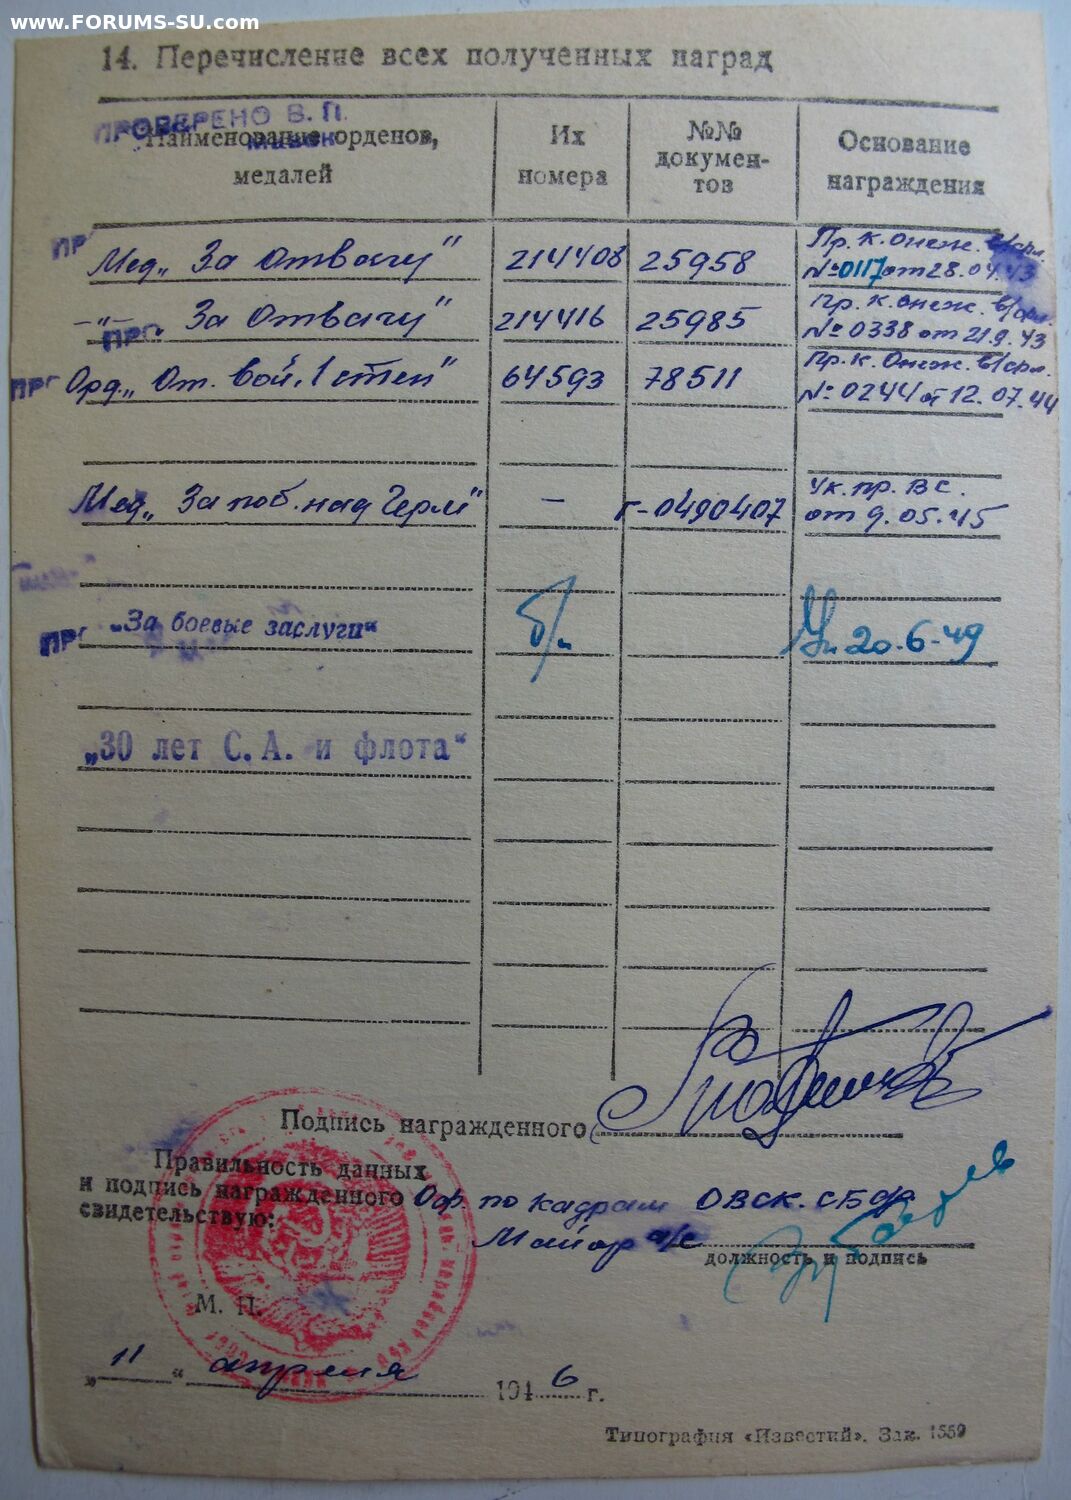 www.FORUMS-SU.com
14. Перечисление всех полученных наград
ПРОВЕРЕНО В. П.
Наименование орденов,
медалей
Их
номера
№№
докумен-
тов
Основание
награждения
Мед „За Отвагу" 214408 25958 Пр. к. онеж. в/фл.
№ 0117 от 28.04.43
—"— „За Отвагу" 214416 25985 Пр. к. онеж. в/фл.
№ 0338 от 21.9.43
Орд „От. Вой. 1 степ" 64593 78511 Пр. к. Онеж. в/фл.
№ 0244 от 12.07.44
Мед „За поб. над Герм" – Г-0490407 Ук. пр. ВС.
от 9.05.45
„За боевые заслуги" б/н Ук. 20-6-49
„30 лет С. А. и флота"
Подпись награжденного
Правильность данных
и подпись награжденного
свидетельствую:
Оф. по кадрам ОВСК. СБФ
Майор а/с
должность и подпись
М. П.
„11" апреля 1946 г.
Типография «Известий». Зак. 1559